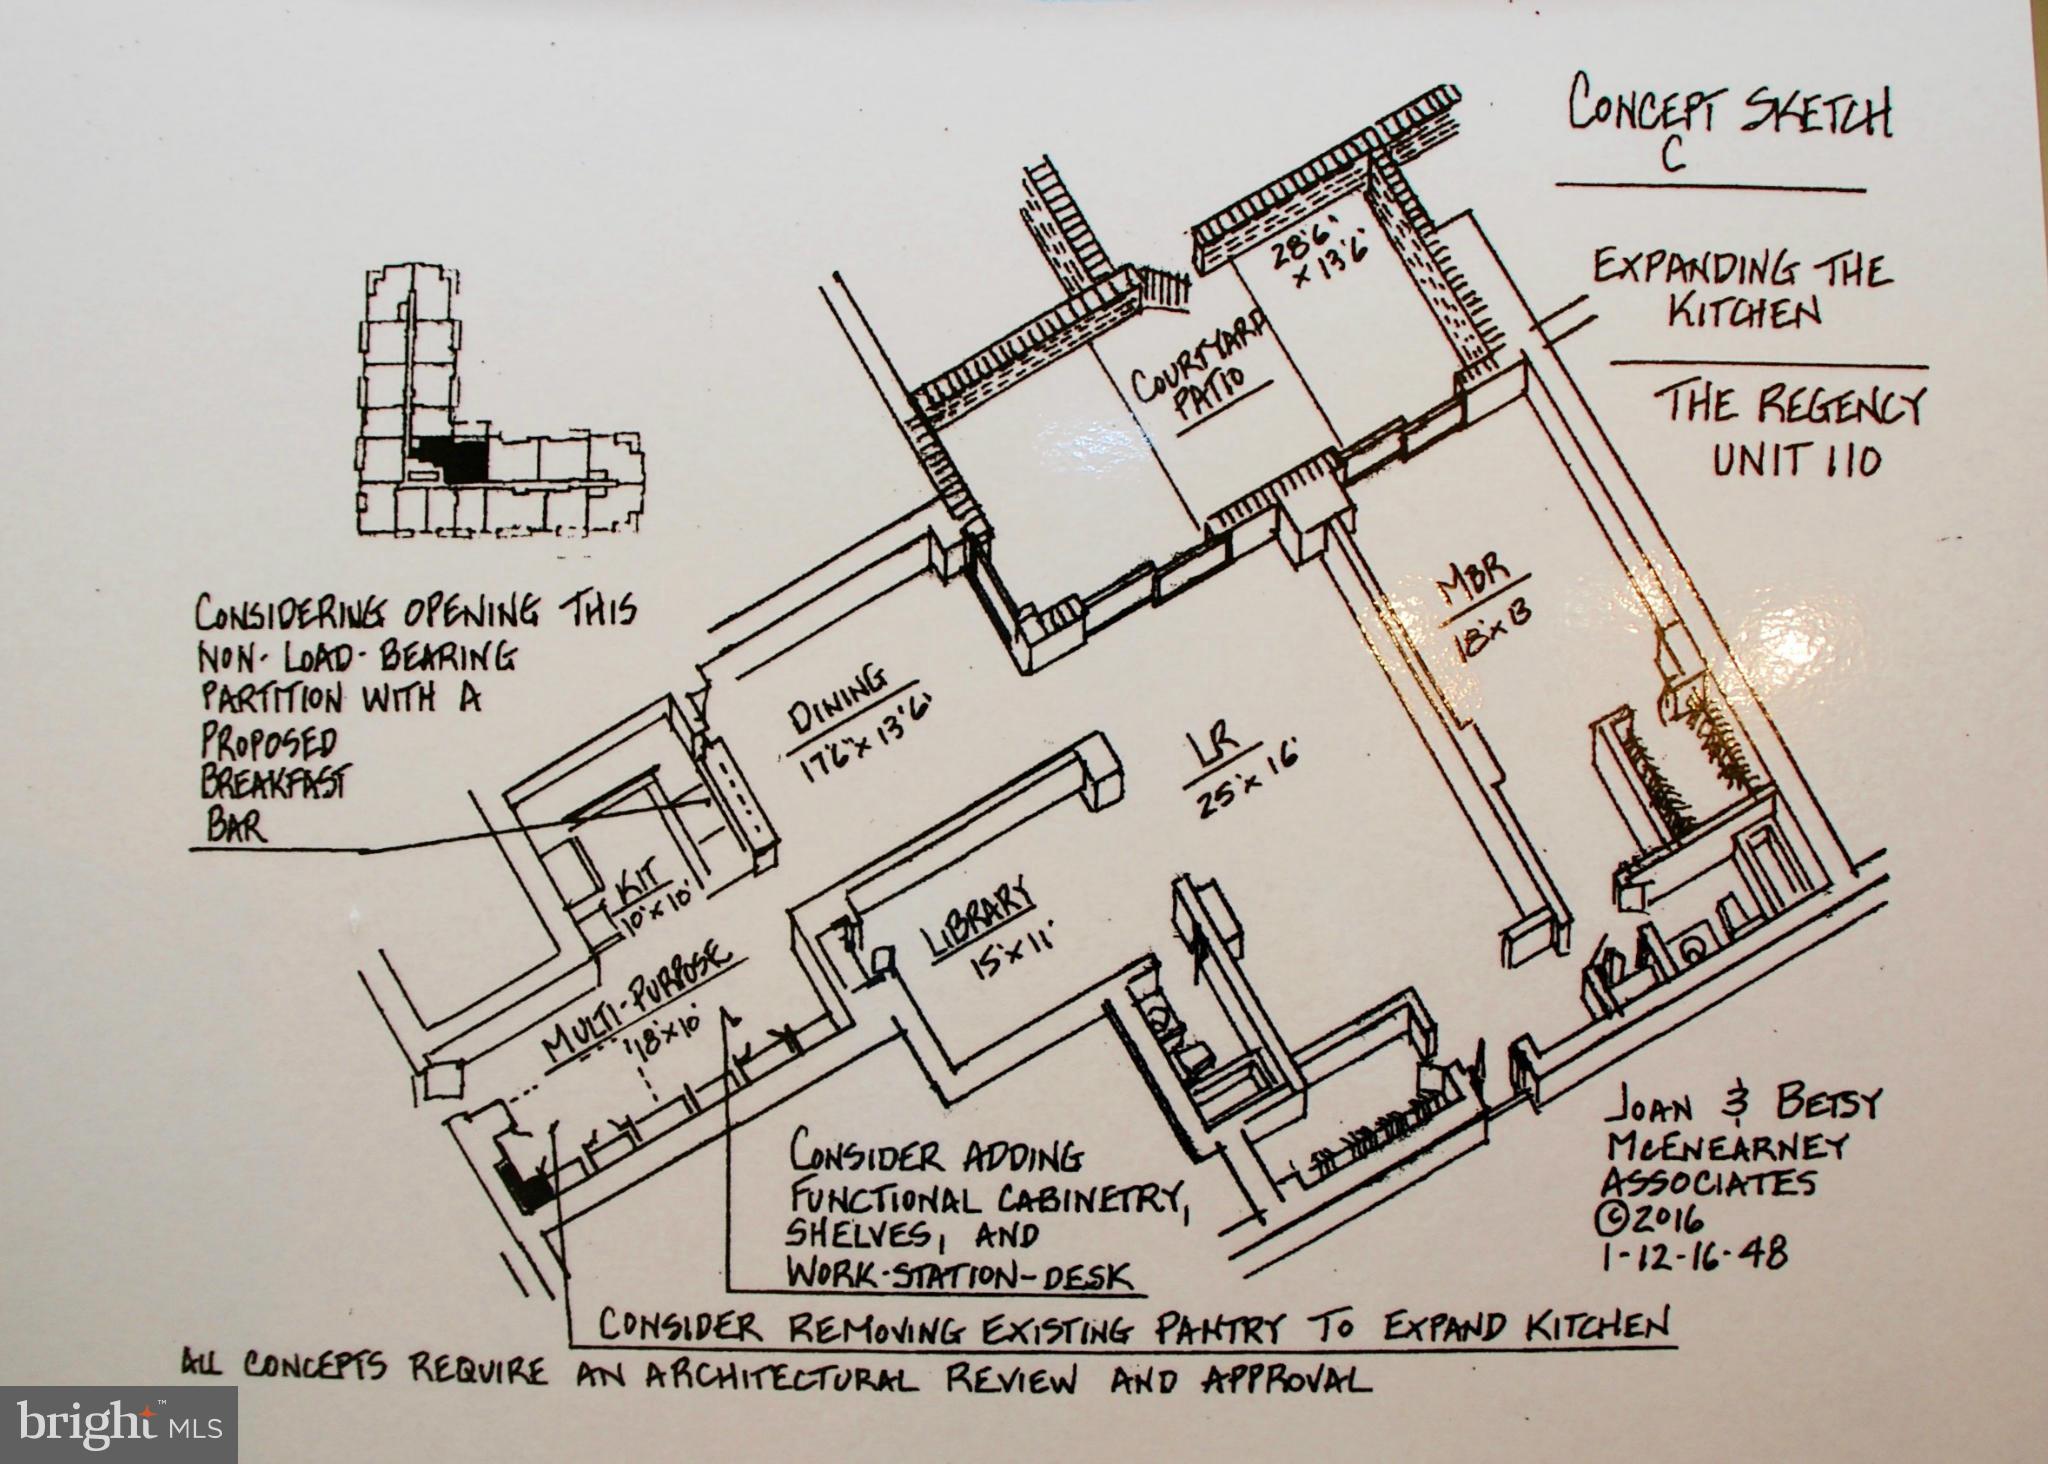 CONCEPT SKETCH
C
EXPANDING THE
KITCHEN
THE REGENCY
UNIT 110
28'6'
x 13'6'
COURTYARD
PATIO
MBR
18'x13
CONSIDERING OPENING THIS
NON-LOAD-BEARING
PARTITION WITH A
PROPOSED
BREAKFAST
BAR
DINING
17'6"x 13'6'
LR
25'x 16'
KIT
10'x 10'
LIBRARY
15'x 11'
MULTI-PURPOSE
18'x10'
CONSIDER ADDING
FUNCTIONAL CABINETRY,
SHELVES, AND
WORK-STATION-DESK
JOAN & BETSY
McENEARNEY
ASSOCIATES
©2016
1-12-16-48
CONSIDER REMOVING EXISTING PANTRY TO EXPAND KITCHEN
ALL CONCEPTS REQUIRE AN ARCHITECTURAL REVIEW AND APPROVAL
bright™ MLS